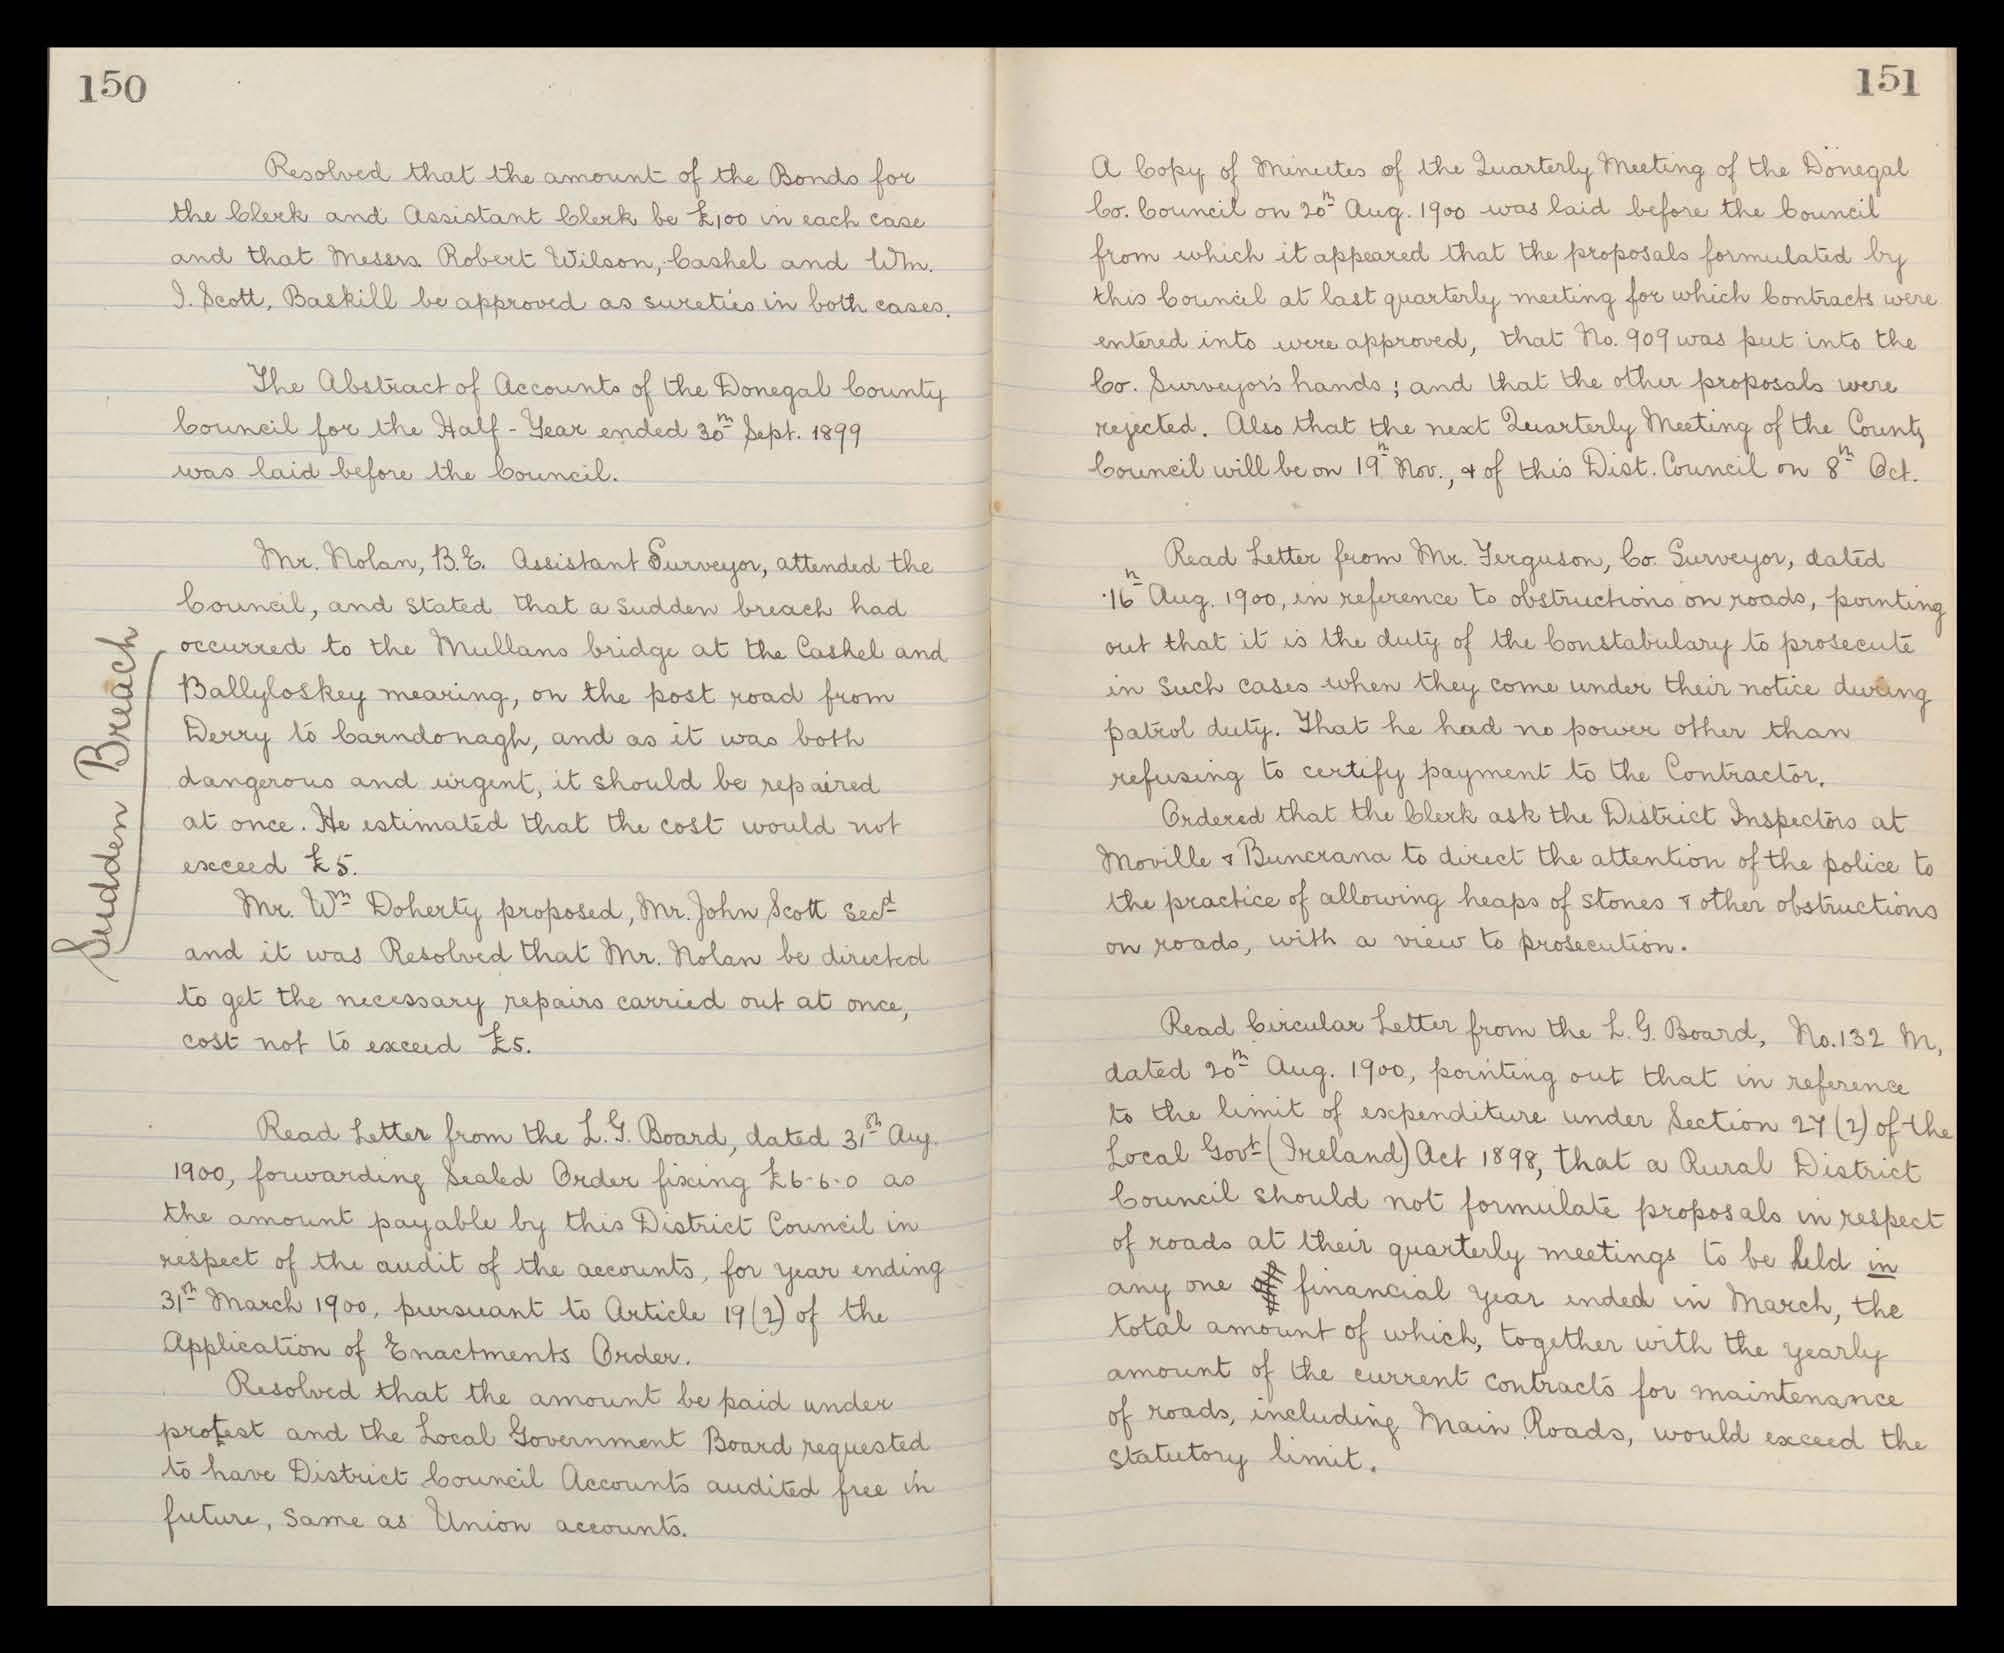 150
Resolved that the amount of the Bonds for
the Clerk and Assistant Clerk be £100 in each case
and that Messrs. Robert Wilson, Cashel and Wm.
J. Scott, Baskill be approved as sureties in both cases.
The Abstract of Accounts of the Donegal County
Council for the Half-Year ended 30th Sept. 1899
was laid before the Council.
Mr. Nolan, B.E. Assistant Surveyor, attended the
Council, and stated that a sudden breach had
occurred to the Mullans bridge at the Cashel and
Ballyloskey mearing, on the post road from
Derry to Carndonagh, and as it was both
dangerous and urgent, it should be repaired
at once. He estimated that the cost would not
exceed £5.
Sudden Breach
Mr. Wm Doherty proposed, Mr. John Scott secd
and it was Resolved that Mr. Nolan be directed
to get the necessary repairs carried out at once,
cost not to exceed £5.
Read Letter from the L.G. Board, dated 31st Aug.
1900, forwarding Sealed Order fixing £6-6-0 as
the amount payable by this District Council in
respect of the audit of the accounts, for year ending
31st March 1900, pursuant to Article 19(2) of the
Application of Enactments Order.
Resolved that the amount be paid under
protest and the Local Government Board requested
to have District Council Accounts audited free in
future, same as Union accounts.
151
A Copy of Minutes of the Quarterly Meeting of the Donegal
Co. Council on 20th Aug. 1900 was laid before the Council
from which it appeared that the proposals formulated by
this Council at last quarterly meeting for which Contracts were
entered into were approved, that No. 909 was put into the
Co. Surveyor's hands; and that the other proposals were
rejected. Also that the next Quarterly Meeting of the County
Council will be on 19th Nov., & of this Dist. Council on 8th Oct.
Read Letter from Mr. Ferguson, Co. Surveyor, dated
16th Aug. 1900, in reference to obstructions on roads, pointing
out that it is the duty of the Constabulary to prosecute
in such cases when they come under their notice during
patrol duty. That he had no power other than
refusing to certify payment to the Contractor.
Ordered that the Clerk ask the District Inspectors at
Moville & Buncrana to direct the attention of the police to
the practice of allowing heaps of stones & other obstructions
on roads, with a view to prosecution.
Read Circular Letter from the L.G. Board, No. 132 M,
dated 20th Aug. 1900, pointing out that in reference
to the limit of expenditure under Section 27(2) of the
Local Govt (Ireland) Act 1898, that a Rural District
Council should not formulate proposals in respect
of roads at their quarterly meetings to be held in
any one financial year ended in March, the
total amount of which, together with the yearly
amount of the current contracts for maintenance
of roads, including Main Roads, would exceed the
statutory limit.